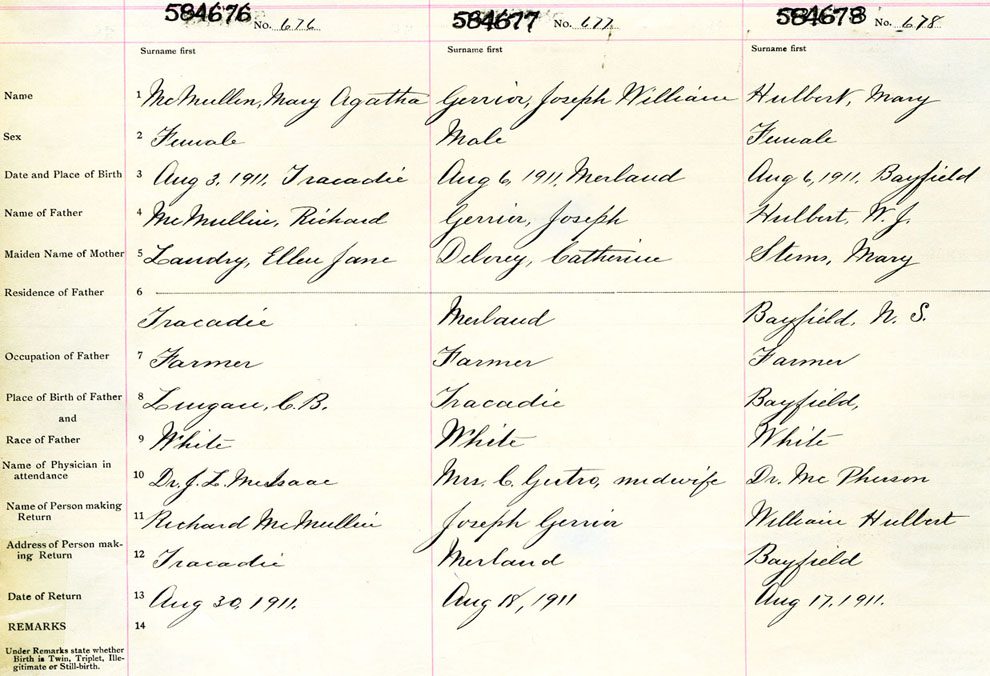 584676 No. 676 584677 No. 677 584678 No. 678
Surname first Surname first Surname first
Name 1 McMullin, Mary Agatha Gerrior, Joseph William Hulbert, Mary
Sex 2 Female Male Female
Date and Place of Birth 3 Aug 3, 1911, Tracadie Aug 6, 1911, Merland Aug 6, 1911, Bayfield
Name of Father 4 McMullin, Richard Gerrior, Joseph Hulbert, W. J.
Maiden Name of Mother 5 Landry, Ellen Jane Delorey, Catherine Sterns, Mary
Residence of Father 6
Tracadie Merland Bayfield, N. S.
Occupation of Father 7 Farmer Farmer Farmer
Place of Birth of Father 8 Lingan, C.B. Tracadie Bayfield,
and
Race of Father 9 White White White
Name of Physician in
attendance 10 Dr. J. L. McIsaac Mrs. C. Gutro, midwife Dr. Mc Pherson
Name of Person making
Return 11 Richard McMullin Joseph Gerrior William Hulbert
Address of Person mak-
ing Return 12 Tracadie Merland Bayfield
Date of Return 13 Aug 30, 1911. Aug 18, 1911 Aug 17, 1911.
REMARKS 14
Under Remarks state whether
Birth is Twin, Triplet, Ille-
gitimate or Still-birth.